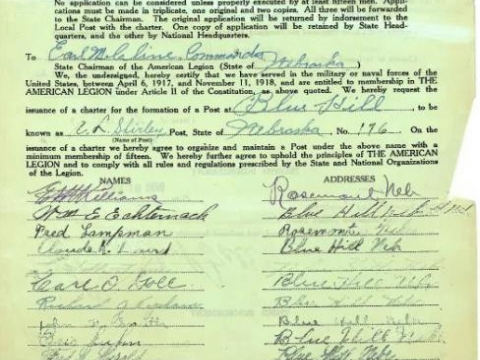 No application can be considered unless properly executed by at least fifteen men. Appli-
cations must be made in triplicate, one original and two copies. All three will be forwarded
to the State Chairman. The original application will be returned by indorsement to the
Local Post with charter. One copy of application will be retained by State Head-
quarters, and the other by National Headquarters.
To Commander
State Chairman of the American Legion (State of Nebraska)
We, the undersigned, hereby certify that we have served in the military or naval forces of the
United States, between April 6, 1917, and November 11, 1918, and are entitled to membership in THE
AMERICAN LEGION under Article II of the Constitution, as above quoted. We hereby request the
issuance of a charter for the formation of a Post at Blue Hill, to be
known as E. L. Shirley Post, State of Nebraska No. 176. On the
(Name of Post)
issuance of a charter we hereby agree to organize and maintain a Post under the above name with a
minimum membership of fifteen. We hereby further agree to uphold the principles of THE AMERICAN
LEGION and to comply with all rules and regulations prescribed by the State and National Organizations
of the Legion.
NAMES ADDRESSES
Williams Rosemont Neb
Wm E Echternach Blue Hill Neb
Fred Lampman Rosemont Neb
Claude R. Blue Hill Neb
Carl Blue Hill Neb
Richard Blue Hill Neb
Blue Hill Neb
Blue Hill Neb
Blue Hill Nebr